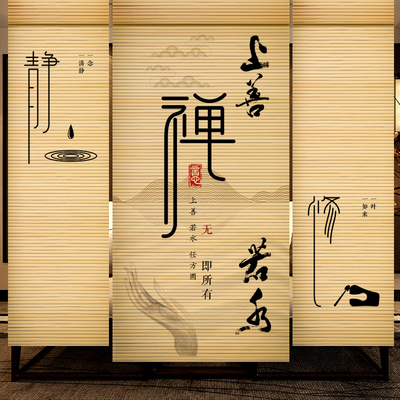 静
一念
一清静
禅
上善
若水
上善 若水 任方圆
无
即所有
修
一叶
一如来